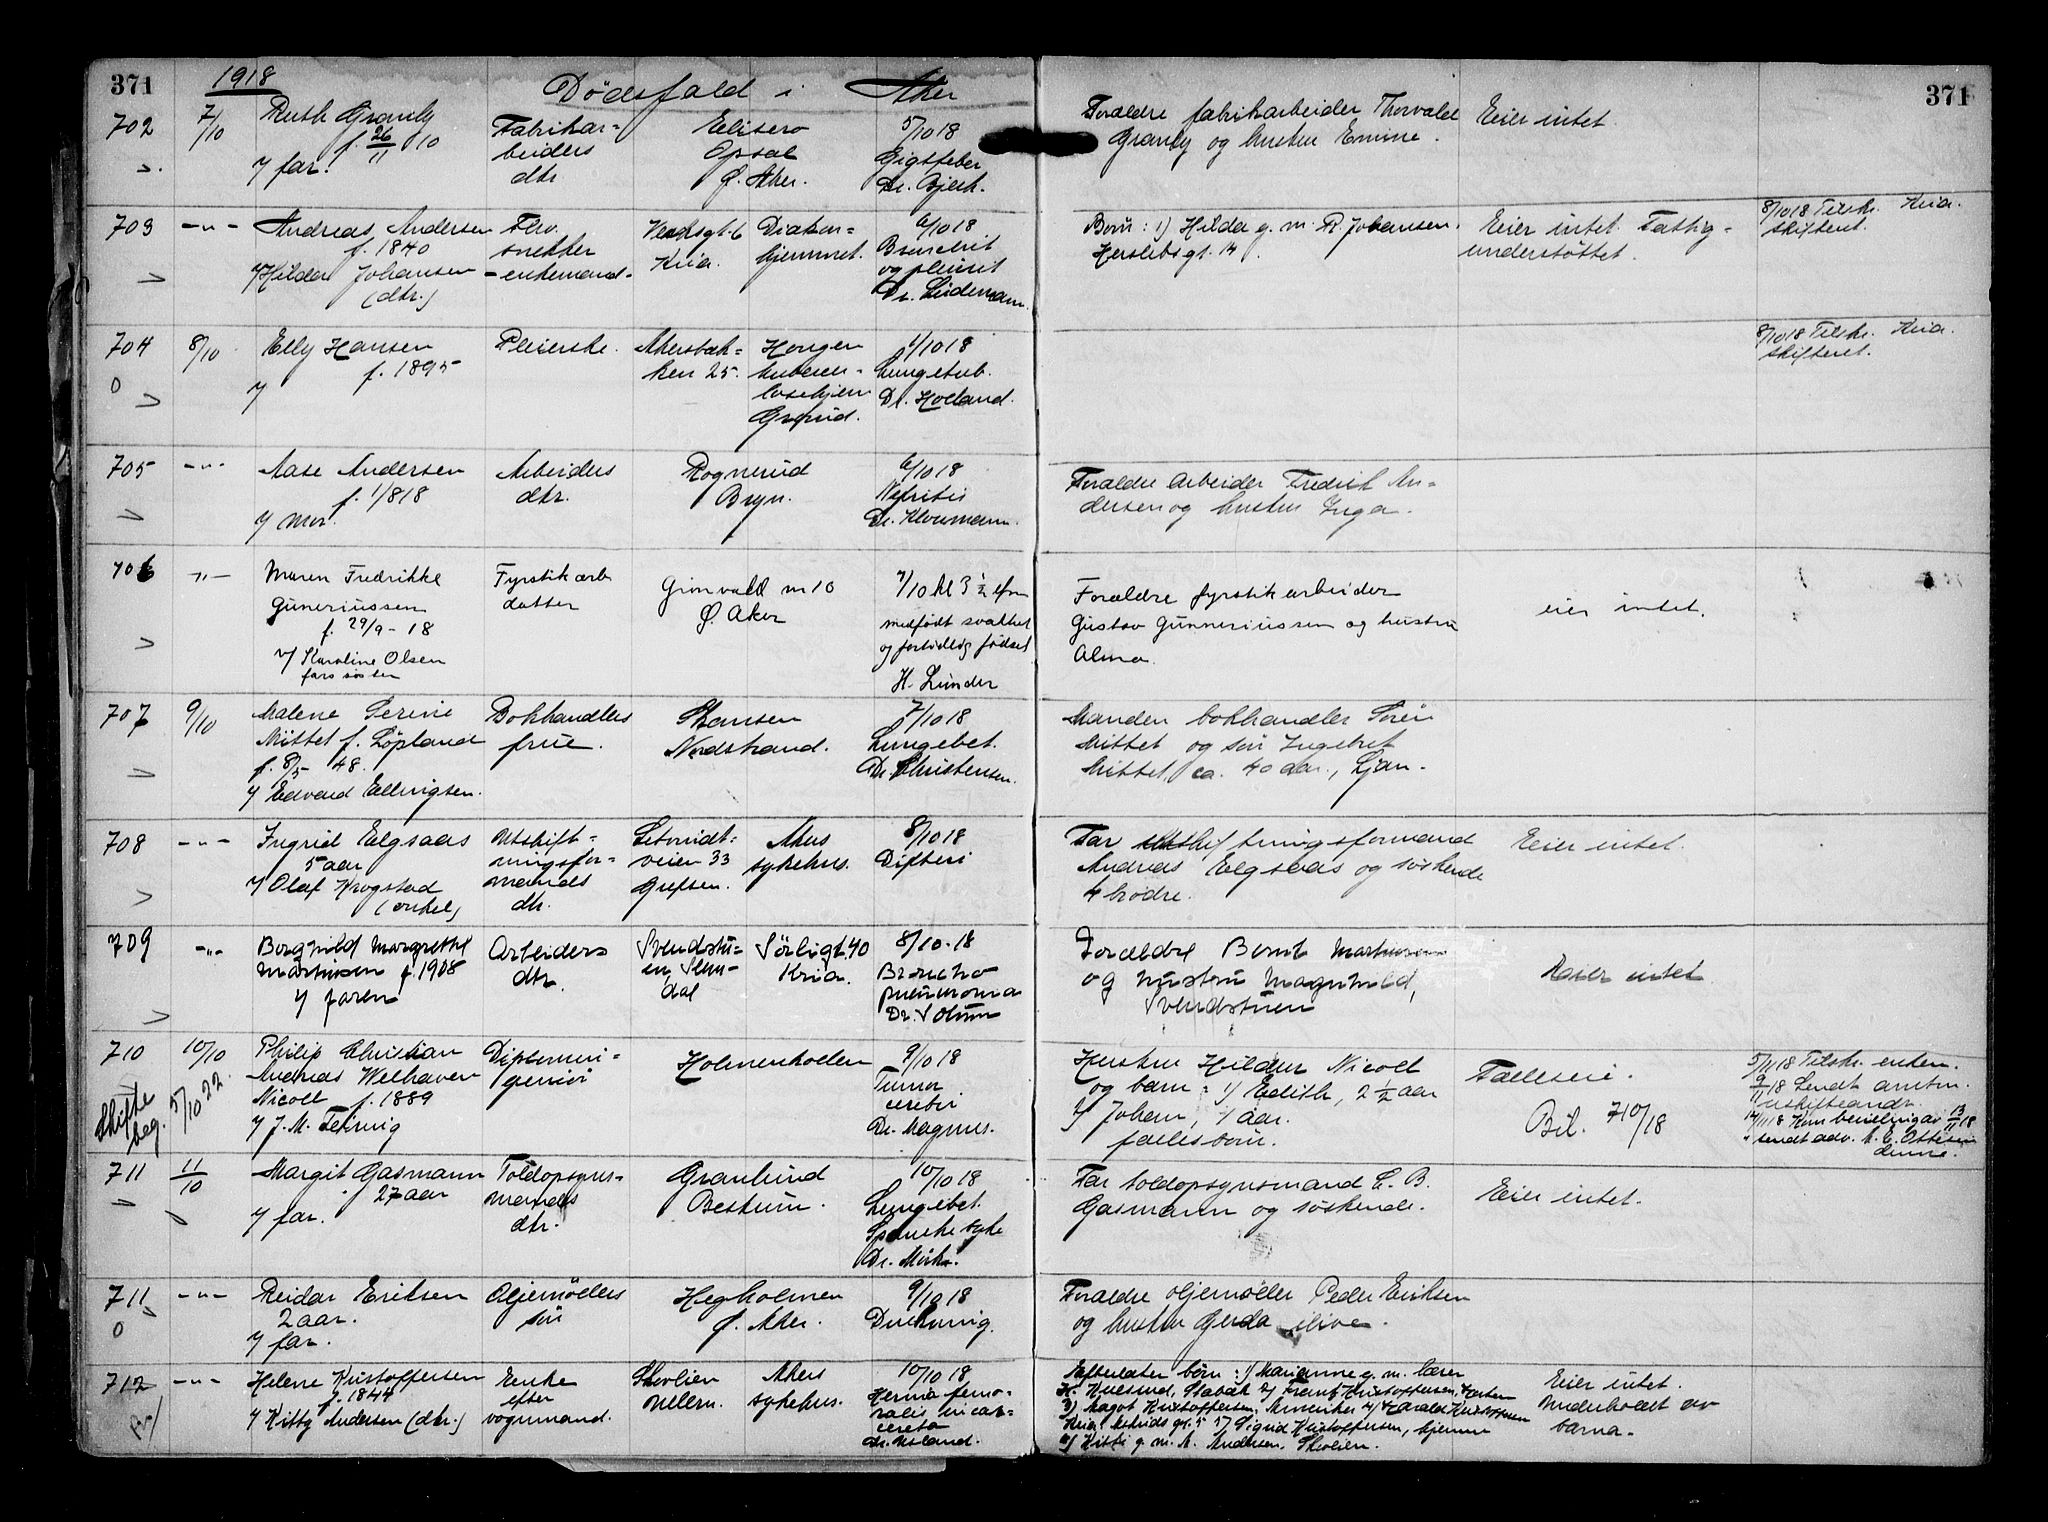 371
1918
Dødsfald i Aker
371
702
7/10
Ruth Granly
f. 26/11 10
v/ far.
Fabrikar=
beiders
dtr.
Elisero
Opsal
Ø. Aker.
5/10 18
Gigtfeber
Dr. Bjerk.
Foraldre fabrikarbeider Thorvald
Granly og hustru Emine.
Eier intet.
703
-"-
Andreas Andersen
f. 1840
v/ Hilda Johansen
(dtr.)
Flev.
snekker
-enkemand-
Kria.
Diakon=
hjemmet.
6/10 18
Bronchit
og pleurit
Dr. Lüdemann.
Børn: 1) Hilda g. m. R. Johansen.
Herslebsgt. 14.
Eier intet. Fattig=
understøttet.
8/10 18 Tilskr. Kria.
skifteret.
704
8/10
Elly Hansen
f. 1895
v/
Pleierske.
Akersbak=
ken 25.
Hougen
tuberku=
losehjem
Grorud.
1/10 18
Lungetub.
Dr. Holland.
8/10 18 Tilskr. Kria.
skifteret.
705
-"-
Aase Andersen
f. 1/8 18
v/ mor.
Arbeiders
dtr.
Rognerud
Bryn.
6/10 18
Nefritis
Dr. Kloumann.
Foraldre arbeider Fredrik An=
dersen og hustru Inga.
706
-"-
Maren Fredrikke
Guneriussen
f. 29/9 - 18
v/ Karoline Olsen
fars søster
Fyrstikarb
datter
Grønvold m 10
Ø. Aker
7/10 kl 3 ½ efm
medfødt svakhet
og fortidlig fødsel
H. Lunder
Forældre fyrstikarbeider
Gustav Gunneriussen og hustru
Alma.
eier intet.
707
9/10
Malene Serine
Mittet f. Løpland
f. 8/5 48.
v/ Edvard Ellingsen.
Bokhandlers
frue.
Skansen
Nordstrand.
7/10 18
Lungebet.
Dr. Christensen.
Manden bokhandler Søren
Mittet og søn Ingebret
Mittet, ca. 40 aar., Ljan.
708
-"-
Ingrid Elgsaas
5 aar
v/ Olaf Krogstad
(onkel)
Utskift=
ningsfor=
mands
dtr.
veien 33
Grefsen.
Akers
sykehus.
8/10 18
Difteri
Far utskiftningsformand
Andreas Elgsaas og søskende
4 brødre.
Eier intet.
709
-"-
Borghild Margrethe
Martinsen f. 1908
v/ faren
Arbeiders
dtr.
Svendstu=
en, Slem=
dal
Sørligt. 40
Kria.
8/10 - 18
Broncho
pneumonia
Dr. Solum
Forældre Bernt Martinsen
og hustru Magnhild,
Svendstuen
Eier intet
710
10/10
Skifte
beg. 5/10 22.
Philip Christian
Andreas Welhaven
Nicoll f. 1889
v/ J. M. Fehring
Diplomin=
geniør
Holmenkollen
9/10 18
Tumor
cerebri
Dr. Magnus.
Hustru Hildur Nicoll
og barn: 1) Edith, 2 ½ aar
2) Johan, 1 aar.
fælles børn.
Fælleseie.
Bil. 710/18
5/11 18 Tilskr. enken.
9/11 18 Sendt amtm.
uskifteandr.
14/11 18 Kom bevilling av 13/11 18
denne.
711
11/10
Margit Gasmann
27 aar
v/ far.
Toldopsyns=
mands
dtr.
Granlund
Bestum.
10/10 18
Lungebet.
Spanske syke
Dr. Mørk.
Far toldopsynsmand C. B.
Gasmann og søskende.
Eier intet.
711
-"-
Reidar Eriksen
2 aar.
v/ far.
Oljemøllers
søn
Hegholmen
Ø. Aker.
9/10 18
Drukning.
Foraldre oljemøller Peder Eriksen
og hustru Gerda ilive.
712
-"-
Helene Kristoffersen
f. 1844
v/ Kitty Andersen (dtr.)
Enke
efter
vognmand.
Skolien
Ullern.
Akers
sykehus.
10/10 18
Hernia femo=
ralis incar=
cerata
Dr. Usland.
Efterlater børn: 1) Marianne g. m. lærer
2) Frants Kristoffersen,
3) Magot Kristoffersen, Amerika 4) Harald Kristoffersen
5) Sigrid Kristoffersen, hjemme
6) Kitti g. m. A. Andersen, Skolien.
Eier intet.
Underholdt av
barna.